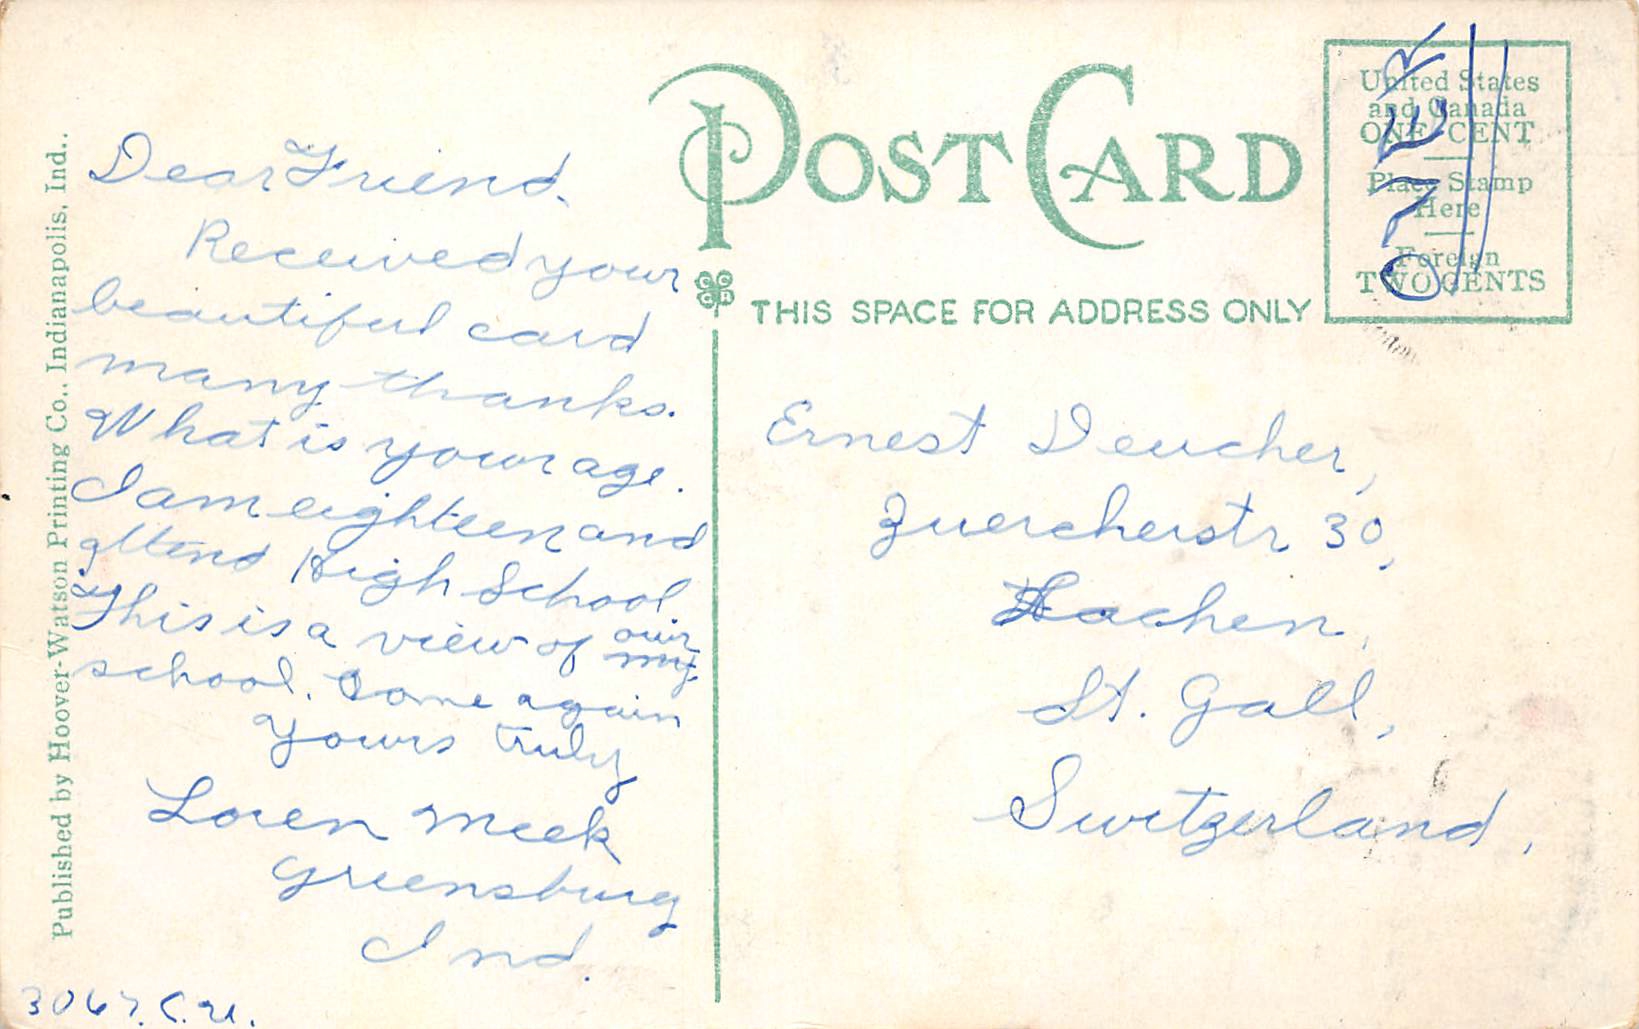 POST CARD
THIS SPACE FOR ADDRESS ONLY
United States
and Canada
ONE CENT
Place Stamp
Here
Foreign
TWO CENTS
OVER
Published by Hoover-Watson Printing Co., Indianapolis, Ind..
Dear Friend.
Received your
beautiful card
many thanks.
What is your age.
I am eighteen and
attend High School
This is a view of our
my
school. Come again
Yours truly
Loren Meek
Greensburg
Ind.
3067. C.U.
Ernest Deucher,
Zuercherstr 30,
Lachen,
St. Gall,
Switzerland,